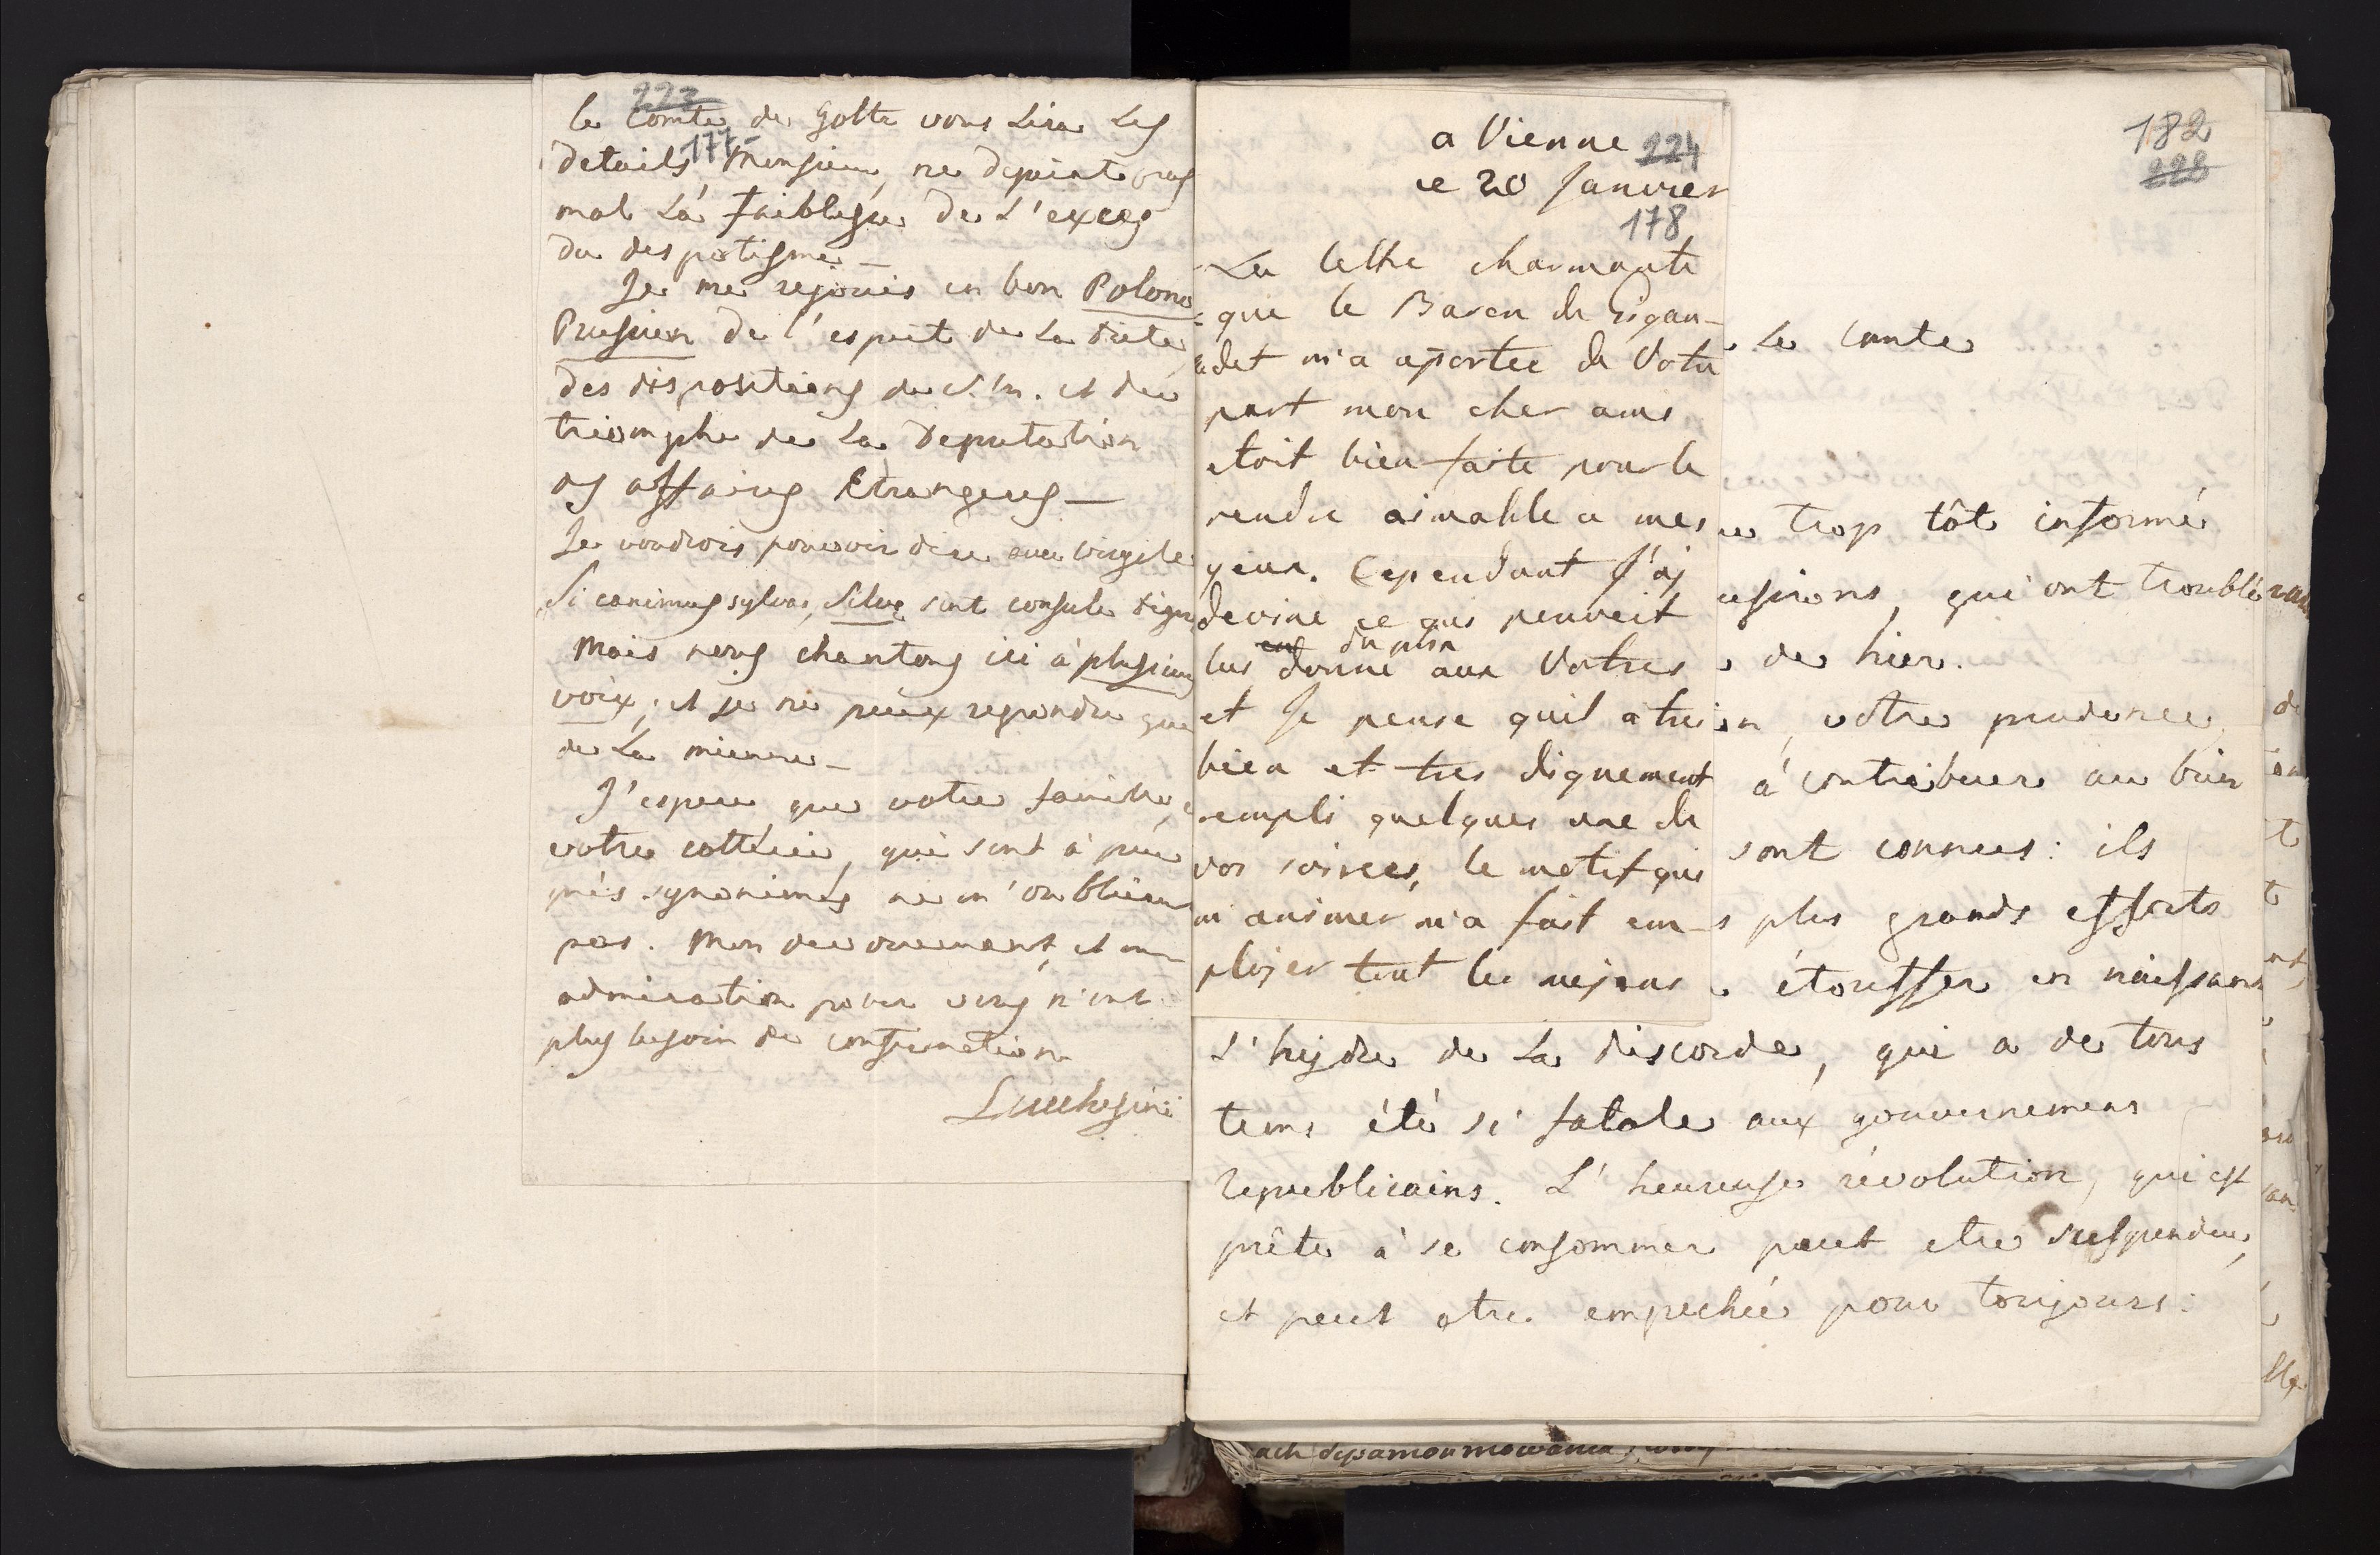 223
le Comte de Goltz vous lira les
177
details Monsieur, ne depeint pas
mal la faiblesse de l'exces
du despotisme —
Je me rejouis en bon Polono
Prussien de l'esprit de la diete,
des dispositions de S. M. et du
triomphe de la Deputation
des affaires Etrangeres —
Je voudrois pouvoir dire avec Virgile
Si canimus sylvas, Silvæ sint consule dignæ
Mais nous chantons ici à plusieurs
voix; et je ne peux repondre que
de la mienne —
J'espere que votre famille, et
votre cotterie, qui sont à peu
près synonimes ne m'oublieront
pas. Mon devouement, et mon
admiration pour vous n'ont
plus besoin de confirmation
Lucchesini
a Vienne 224
ce 20 Janvier
178
La lettre charmante
que le Baron de Gigau-
det m'a aportée de Votre
part mon cher ami
etoit bien faite pour le
rendre aimable a mes
yeux. Cependant J'ai
deviné ce qui pouvoit
lui donné du prix aux Votres
et Je pense quil a tres
bien et tres dignement
rempli quelques une de
vos soirees, le motif qui
m'animer m'a fait em-
ploier tout les mojens
182
228
le Comte
trop tôt informé
ussions, qui ont troublé
de hier.
n, votre prudence,
à contribuer au bien
sont connues: ils
s plus grands efforts
étouffer en naissant
L'hydre de la discorde, qui a de tous
tems été si fatale aux gouvernemens
republicains. L'heureuse révolution, qui est
prête à se consommer peut etre suspendue,
et peut etre empechée pour toujours: